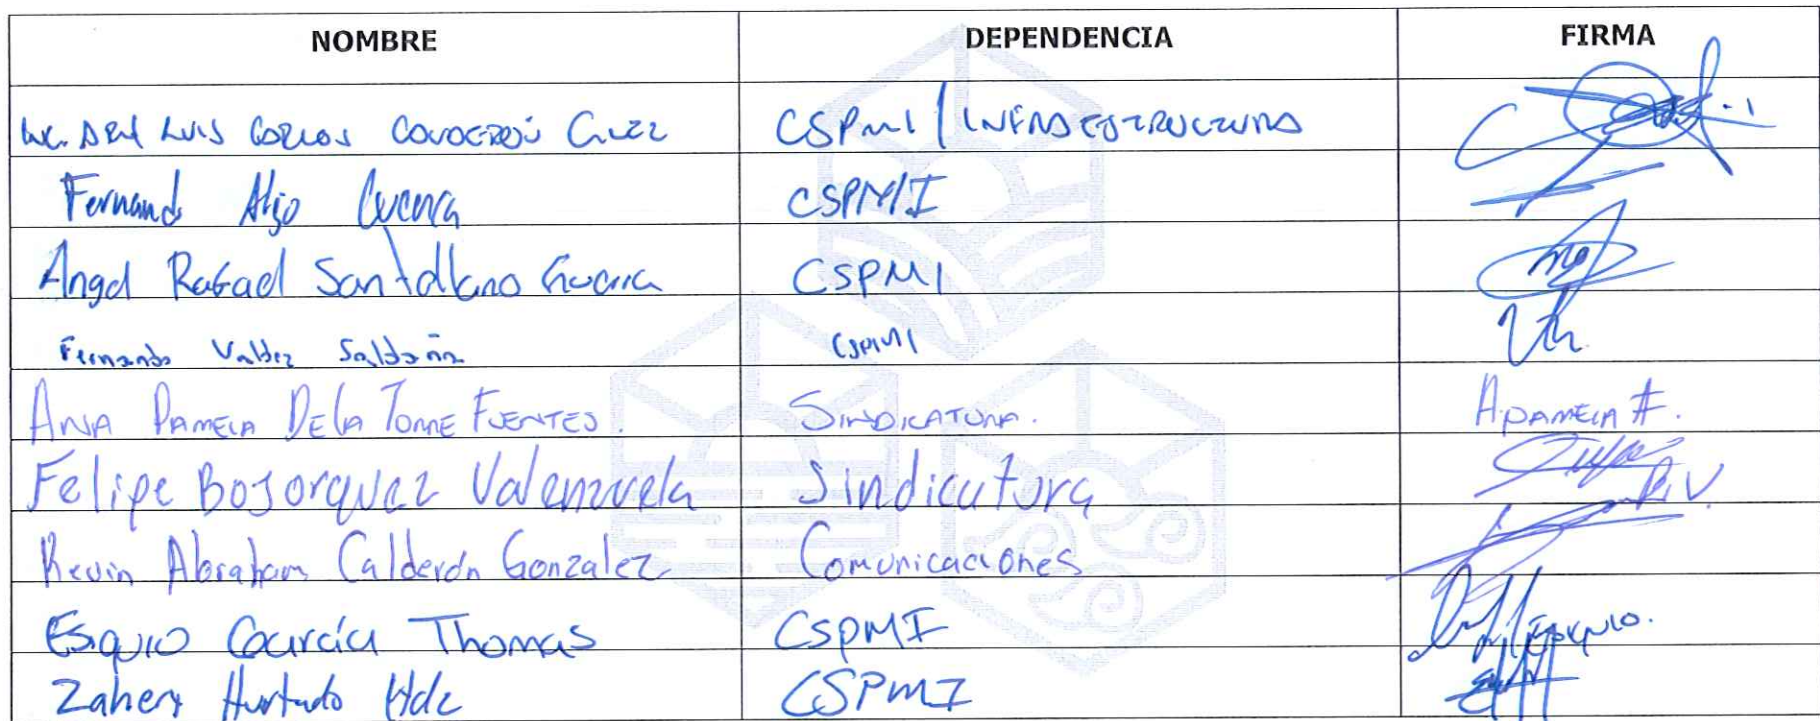 NOMBRE DEPENDENCIA FIRMA
LUIS CARLOS CSPMI / INFRAESTRUCTURA
Fernando CSPM/I
Angel Rafael Santollano Guerra CSPMI
Fernando Valdez Saldaña CSPMI
ANA PAMELA DE la TORRE FUENTES. SINDICATURA. A PAMELA F.
Felipe BOJorquez Valenzuela Sindicatura
Kevin Abraham Calderón Gonzalez Comunicaciones
Esquio García Thomas CSPMI
Zahery Hurtado Hdz CSPMI